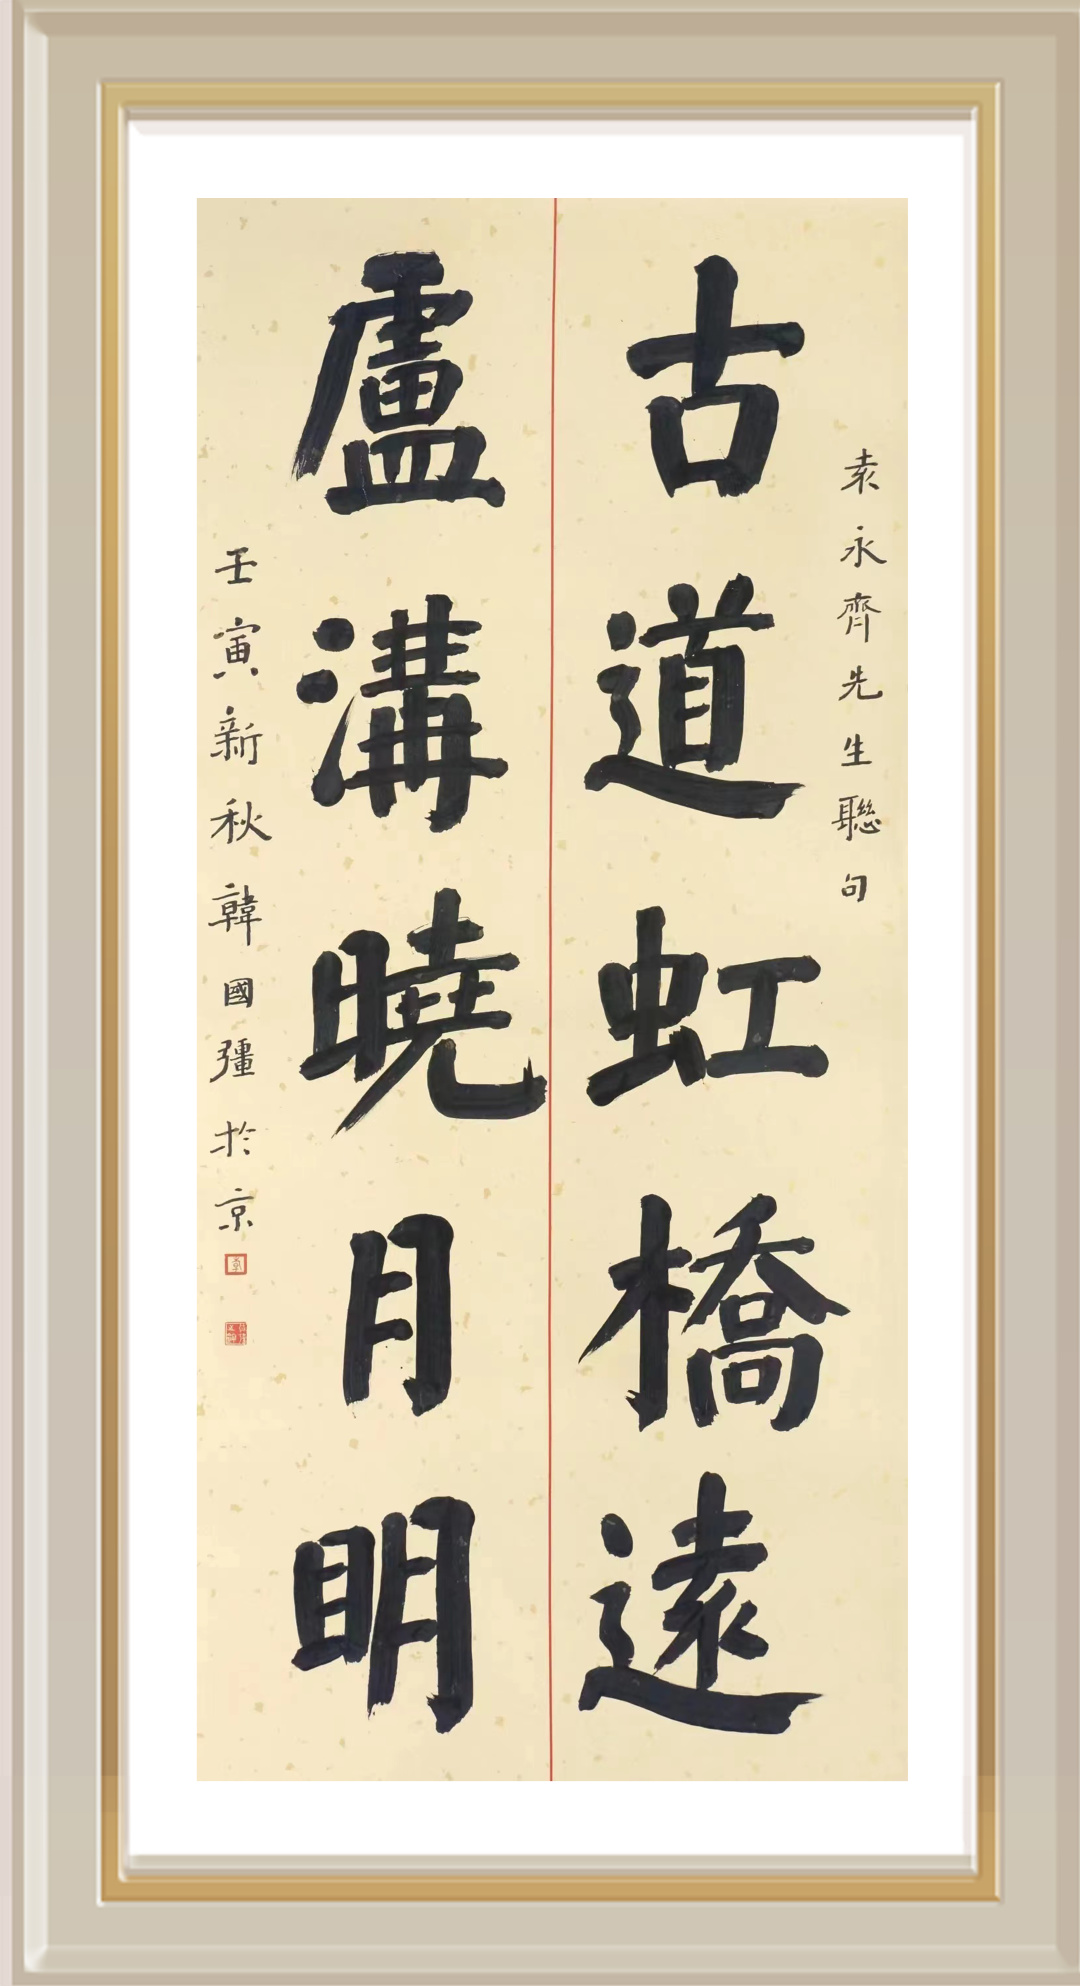 袁永齊先生聯句
古道虹橋遠
盧溝曉月明
壬寅新秋韓國彊於京